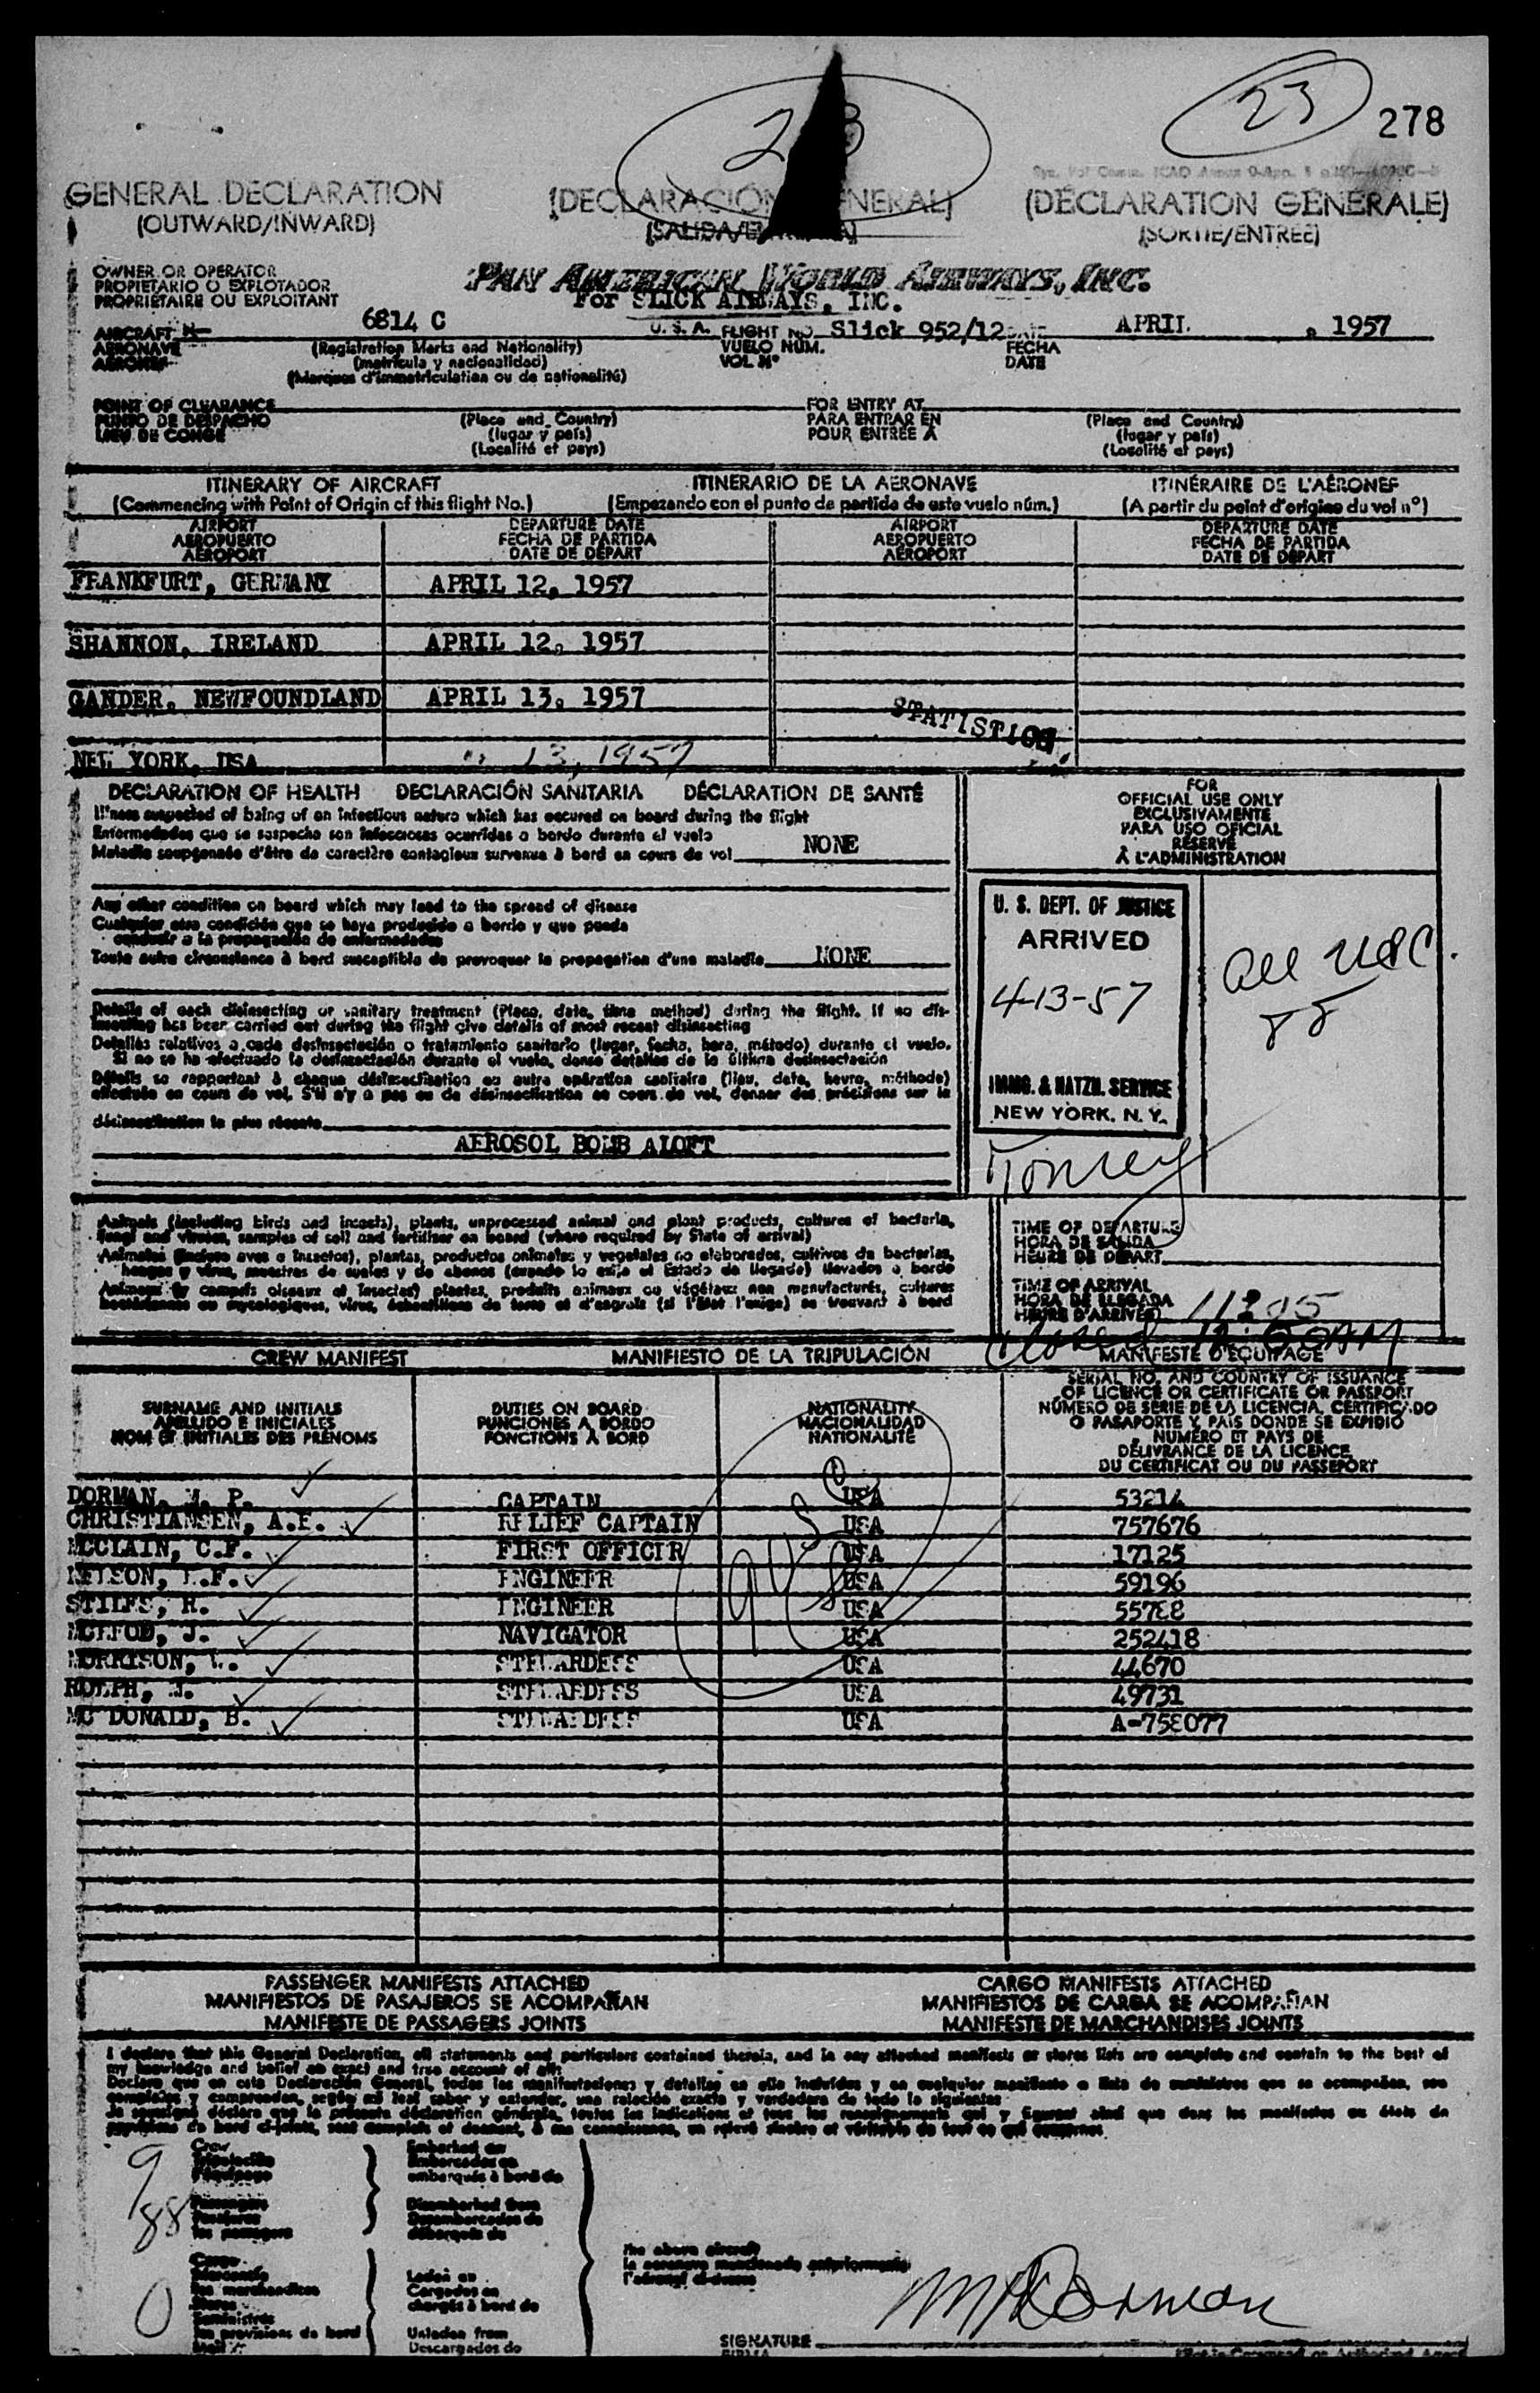 23
278
GENERAL DECLARATION
(OUTWARD/INWARD)
(DECLARATION GÉNÉRALE)
(SORTIE/ENTREE)
OWNER OR OPERATOR
PROPIETARIO O EXPLOTADOR
PROPRIÉTAIRE OU EXPLOITANT
PAN AMERICAN WORLD AIRWAYS, INC.
For SLICK AIRWAYS, INC.
AIRCRAFT N 6814 C U. S. A. FLIGHT NO. Slick 952/12 DATE APRIL , 1957
AERONAVE (Registration Marks and Nationality) VUELO NÚM. FECHA
AÉRONEF (matrícula y nacionalidad) VOL Nº DATE
(Marques d'immatriculation ou de nationalité)
POINT OF CLEARANCE FOR ENTRY AT
PUNTO DE DESPACHO (Place and Country) PARA ENTRAR EN (Place and Country)
LIEU DE CONGÉ (lugar y país) POUR ENTRÉE À (lugar y país)
(Localité et pays) (Localité et pays)
ITINERARY OF AIRCRAFT ITINERARIO DE LA AERONAVE ITINÉRAIRE DE L'AÉRONEF
(Commencing with Point of Origin of this flight No.) (Empezando con el punto de partida de este vuelo núm.) (A partir du point d'origine du vol nº)
AIRPORT DEPARTURE DATE AIRPORT DEPARTURE DATE
AEROPUERTO FECHA DE PARTIDA AEROPUERTO FECHA DE PARTIDA
AÉROPORT DATE DE DÉPART AÉROPORT DATE DE DÉPART
FRANKFURT, GERMANY APRIL 12, 1957
SHANNON, IRELAND APRIL 12, 1957
GANDER, NEWFOUNDLAND APRIL 13, 1957
NEW YORK, USA " 13, 1957
DECLARATION OF HEALTH DECLARACIÓN SANITARIA DÉCLARATION DE SANTÉ
Illness suspected of being of an infectious nature which has occured on board during the flight
Enfermedades que se sospecha son infecciosas ocurridas a bordo durante el vuelo
Maladie soupçonnée d'être de caractère contagieux survenue à bord en cours de vol NONE
FOR
OFFICIAL USE ONLY
EXCLUSIVAMENTE
PARA USO OFICIAL
RÉSERVÉ
À L'ADMINISTRATION
Any other condition on board which may lead to the spread of disease
Cualquier otra condición que se haya producido a bordo y que pueda
conducir a la propagación de enfermedades
Toute autre circonstance à bord susceptible de provoquer la propagation d'une maladie NONE
U. S. DEPT. OF JUSTICE
ARRIVED
4-13-57
IMMG. & NATZN. SERVICE
NEW YORK, N. Y.
All USC.
88
Details of each disinsecting or sanitary treatment (Place, date, time method) during the flight. If no dis-
insecting has been carried out during the flight give details of most recent disinsecting
Detalles relativos a cada desinsectación o tratamiento sanitario (lugar, fecha, hora, método) durante el vuelo.
Si no se ha efectuado la desinsectación durante el vuelo, dense detalles de la última desinsectación
Détails se rapportant à chaque désinsectisation ou autre opération sanitaire (lieu, date, heure, méthode)
effectuée en cours de vol. S'il n'y a pas eu de désinsectisation en cours de vol, donner des précisions sur la
désinsectisation la plus récente
AEROSOL BOMB ALOFT
Animals (including birds and insects), plants, unprocessed animal and plant products, cultures of bacteria,
fungi and viruses, samples of soil and fertilizer on board (where required by State of arrival)
Animales (incluso aves e insectos), plantas, productos animales y vegetales no elaborados, cultivos de bacterias,
hongos y virus, muestras de suelos y de abonos (cuando lo exija el Estado de llegada) llevados a bordo
Animaux (y compris oiseaux et insectes) plantes, produits animaux ou végétaux non manufacturés, cultures
bactériennes ou mycologiques, virus, échantillons de terre et d'engrais (si l'État l'exige) se trouvant à bord
TIME OF DEPARTURE
HORA DE SALIDA
HEURE DE DÉPART
TIME OF ARRIVAL
HORA DE LLEGADA
HEURE D'ARRIVÉE
CREW MANIFEST MANIFIESTO DE LA TRIPULACIÓN MANIFESTE D'ÉQUIPAGE
SURNAME AND INITIALS DUTIES ON BOARD NATIONALITY SERIAL NO. AND COUNTRY OF ISSUANCE
APELLIDO E INICIALES FUNCIONES A BORDO NACIONALIDAD OF LICENCE OR CERTIFICATE OR PASSPORT
NOM ET INITIALES DES PRÉNOMS FONCTIONS À BORD NATIONALITÉ NÚMERO DE SERIE DE LA LICENCIA, CERTIFICADO
O PASAPORTE Y PAÍS DONDE SE EXPIDIÓ
NUMÉRO ET PAYS DE
DÉLIVRANCE DE LA LICENCE
DU CERTIFICAT OU DU PASSEPORT
DORMAN, M. P. CAPTAIN USA 53214
CHRISTIANSEN, A.E. RELIEF CAPTAIN USA 757676
MCCLAIN, C.F. FIRST OFFICER USA 17125
NELSON, .F. ENGINEER USA 59196
STILES, H. ENGINEER USA 55788
MCLEOD, J. NAVIGATOR USA 252418
MORRISON, STEWARDESS USA 44670
ROLPH, J. STEWARDESS USA 49731
MC DONALD, B. STEWARDESS USA A-758077
PASSENGER MANIFESTS ATTACHED CARGO MANIFESTS ATTACHED
MANIFIESTOS DE PASAJEROS SE ACOMPAÑAN MANIFIESTOS DE CARGA SE ACOMPAÑAN
MANIFESTE DE PASSAGERS JOINTS MANIFESTE DE MARCHANDISES JOINTS
I declare that this General Declaration, all statements and particulars contained therein, and in any attached manifests or stores lists are complete and contain to the best of
my knowledge and belief an exact and true account of all:
9 Crew Embarked on
88 Passengers Disembarked from
0 Cargo
Laden on
Cargados en
chargés à bord de
Unladen from
Descargados de
The above aircraft
MP Dorman
SIGNATURE